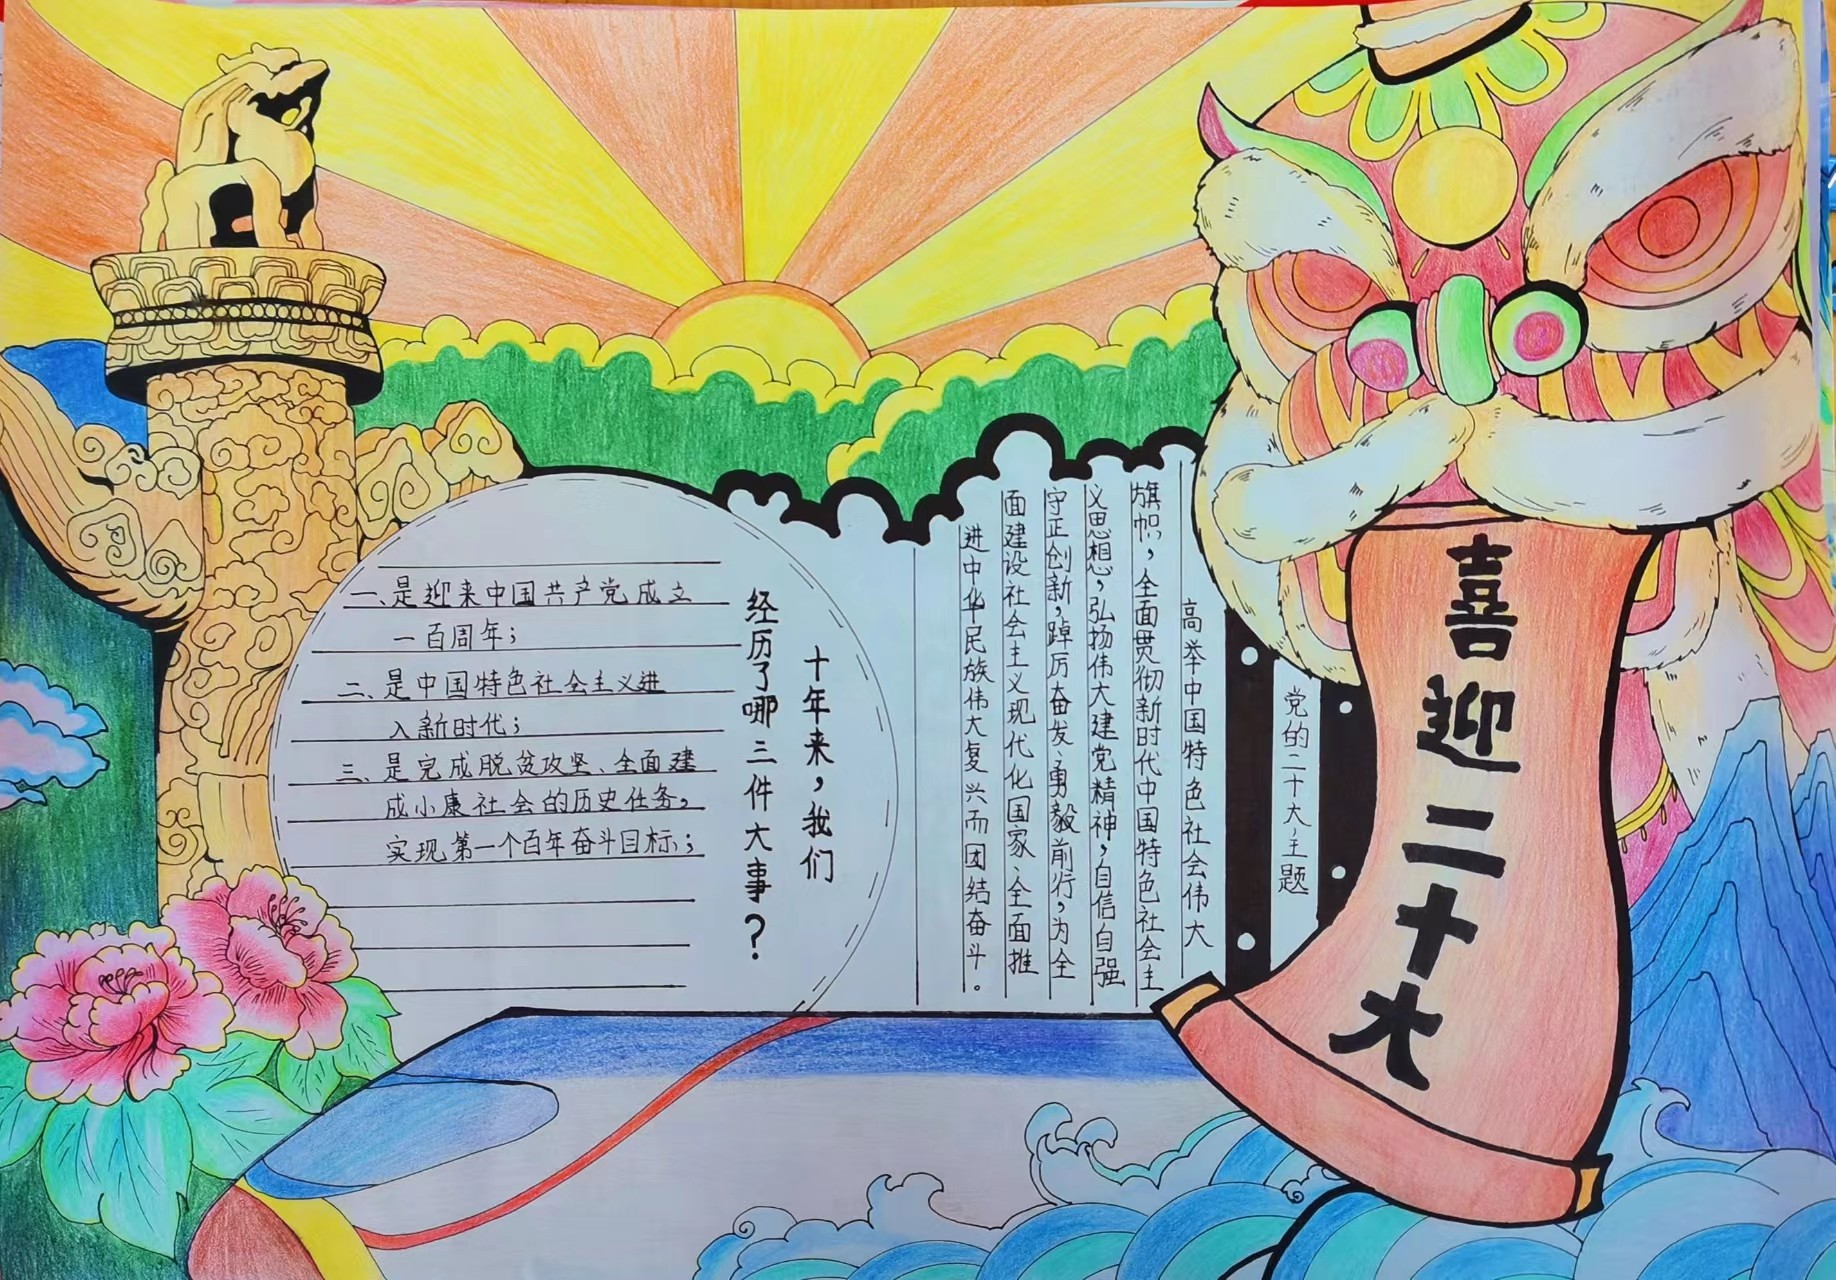 喜迎二十大
党的二十大主题
高举中国特色社会伟大
旗帜，全面贯彻新时代中国特色社会主
义思想，弘扬伟大建党精神，自信自强
守正创新，踔厉奋发、勇毅前行，为全
面建设社会主义现代化国家、全面推
进中华民族伟大复兴而团结奋斗。
十年来，我们
经历了哪三件大事？
一、是迎来中国共产党成立
一百周年；
二、是中国特色社会主义进
入新时代；
三、是完成脱贫攻坚、全面建
成小康社会的历史任务，
实现第一个百年奋斗目标；